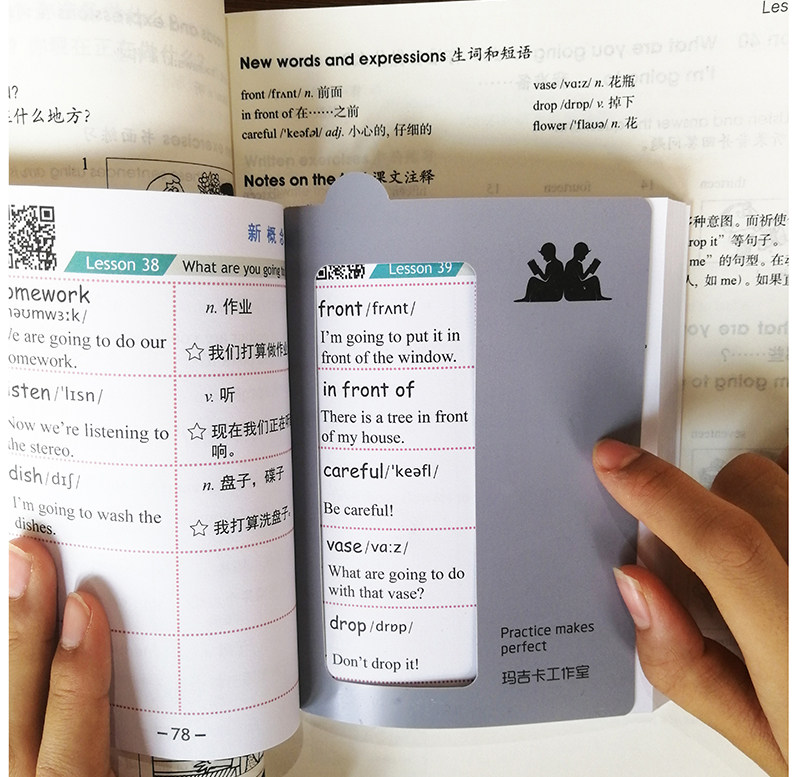 Les
New words and expressions 生词和短语
front /frʌnt/ n. 前面
in front of 在……之前
careful /'keəfəl/ adj. 小心的, 仔细的
vase /vɑːz/ n. 花瓶
drop /drɒp/ v. 掉下
flower /'flaʊə/ n. 花
Notes on the 课文注释
什么地方?
1
种意图。而祈使
rop it” 等句子。
me” 的句型。在
人, 如 me)。如果
新概念
Lesson 38 What are you going
omework
əʊmwɜːk/
e are going to do our
omework.
n. 作业
☆我们打算做作业
sten/'lɪsn/
Now we're listening to
the stereo.
v. 听
☆现在我们正在听
响。
dish/dɪʃ/
I'm going to wash the
dishes.
n. 盘子，碟子
☆我打算洗盘子。
–78–
Lesson 39
front/frʌnt/
I'm going to put it in
front of the window.
in front of
There is a tree in front
of my house.
careful/'keəfl/
Be careful!
vase/vɑːz/
What are going to do
with that vase?
drop/drɒp/
Don't drop it!
Practice makes
perfect
玛吉卡工作室